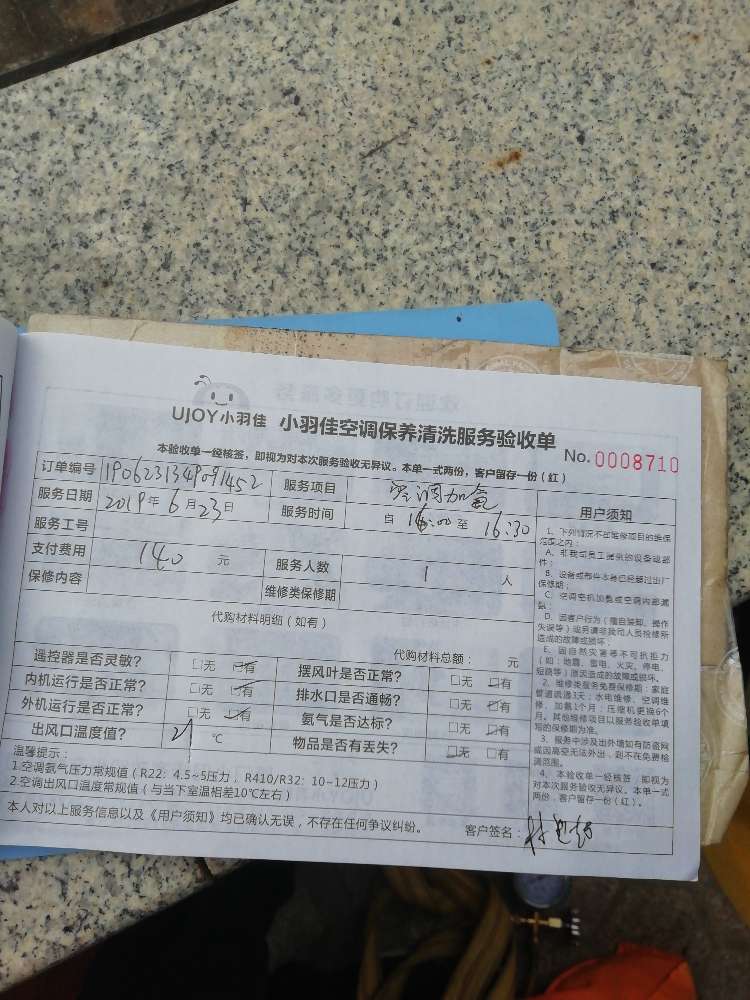 UJOY小羽佳 小羽佳空调保养清洗服务验收单 No. 0008710
本验收单一经核签，即视为对本次服务验收无异议。本单一式两份，客户留存一份（红）
订单编号 1906231349091452 服务项目 空调加氟 用户须知
服务日期 2019年6月23日 服务时间 自 16:00 至 16:30
服务工号
支付费用 140 元 服务人数 1 人
保修内容 维修类保修期
代购材料明细（如有）
代购材料总额： 元
遥控器是否灵敏？ □无 □有 摆风叶是否正常？ □无 □有
内机运行是否正常？ □无 □有 排水口是否通畅？ □无 □有
外机运行是否正常？ □无 □有 氨气是否达标？ □无 □有
出风口温度值？ 21 ℃ 物品是否有丢失？ □无 □有
温馨提示：
1.空调氨气压力常规值（R22：4.5~5压力，R410/R32：10~12压力）
2.空调出风口温度常规值（与当下室温相差10℃左右）
本人对以上服务信息以及《用户须知》均已确认无误，不存在任何争议纠纷。 客户签名：
1、下列情况不在维修项目的维保
范围之内：
A、非我司员工提供的设备或部
件；
B、设备或部件本身已经超过出厂
保修期；
C、空调空机加氨或空调内部漏
氨；
D、因客户行为（擅自装卸、操作
失误等）或另请非我司人员检修所
造成的故障或损坏；
E、因自然灾害等不可抗拒力
（如：地震、雷电、火灾、停电、
短路等）原因造成的故障或损坏。
2、维修类服务免费保修期：家庭
管道疏通3天；水电维修、空调维
修、加氨1个月；压缩机更换6个
月。其他维修项目以服务验收单填
写的保修期为准。
3、服务中涉及出外墙如有防盗网
或因高空无法外出，则不在免费检
测范围。
4、本验收单一经核签，即视为
对本次服务验收无异议。本单一式
两份，客户留存一份（红）。